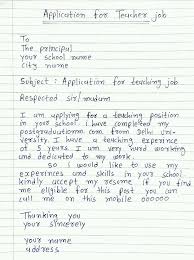 Application for Teacher job
To
The principal
your school name
City name
Subject : Application for teaching job
Respected sir/madam
I am applying for a teaching position
in your school. i have completed my
postgraduation m.com from Delhi uni-
versity I have a teaching experience
of 5 years. I am very hard working
and dedicated to my work.
so I would like to use my
experinces and skills in your school
kindly accept my resume if you find
me eligible for this post you can
call me on this mobile oooooo
Thanking you
your sincerely
your name
address